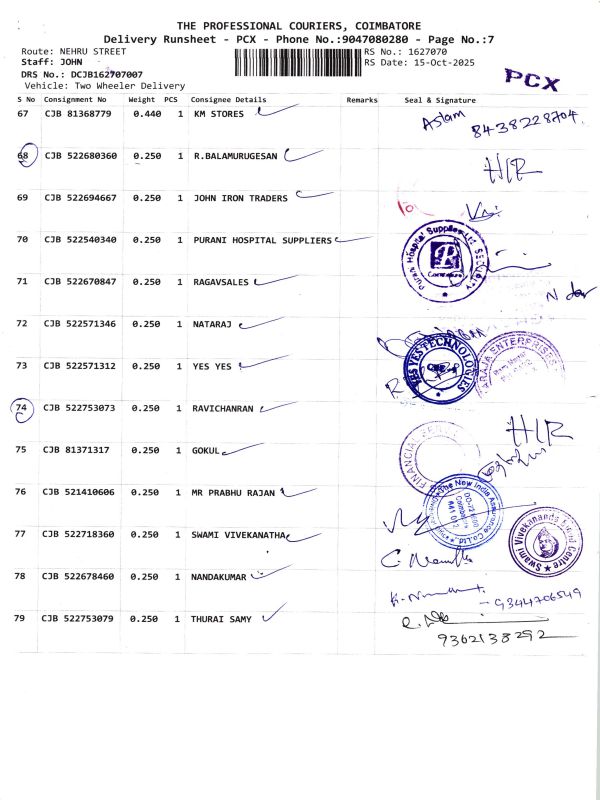 THE PROFESSIONAL COURIERS, COIMBATORE
Delivery Runsheet - PCX - Phone No.:9047080280 - Page No.:7
Route: NEHRU STREET RS No.: 1627070
Staff: JOHN RS Date: 15-Oct-2025
DRS No.: DCJB162707007
Vehicle: Two Wheeler Delivery
PCX
S No Consignment No Weight PCS Consignee Details Remarks Seal & Signature
67 CJB 81368779 0.440 1 KM STORES Aslam
8438228704.
68 CJB 522680360 0.250 1 R.BALAMURUGESAN H/R
69 CJB 522694667 0.250 1 JOHN IRON TRADERS
70 CJB 522540340 0.250 1 PURANI HOSPITAL SUPPLIERS
Purani Hospital Supplies Ltd SECURITY
Coimbatore
71 CJB 522670847 0.250 1 RAGAVSALES
72 CJB 522571346 0.250 1 NATARAJ
73 CJB 522571312 0.250 1 YES YES
YES YES TECHNOLOGIES
CBE
RAJA ENTERPRISES
74 CJB 522753073 0.250 1 RAVICHANRAN H/R
75 CJB 81371317 0.250 1 GOKUL
FINANCIAL
76 CJB 521410606 0.250 1 MR PRABHU RAJAN
The New India Assurance Co.Ltd.
77 CJB 522718360 0.250 1 SWAMI VIVEKANATHA
Swami Vivekananda Centre
78 CJB 522678460 0.250 1 NANDAKUMAR
9344706549
79 CJB 522753079 0.250 1 THURAI SAMY
9362138292